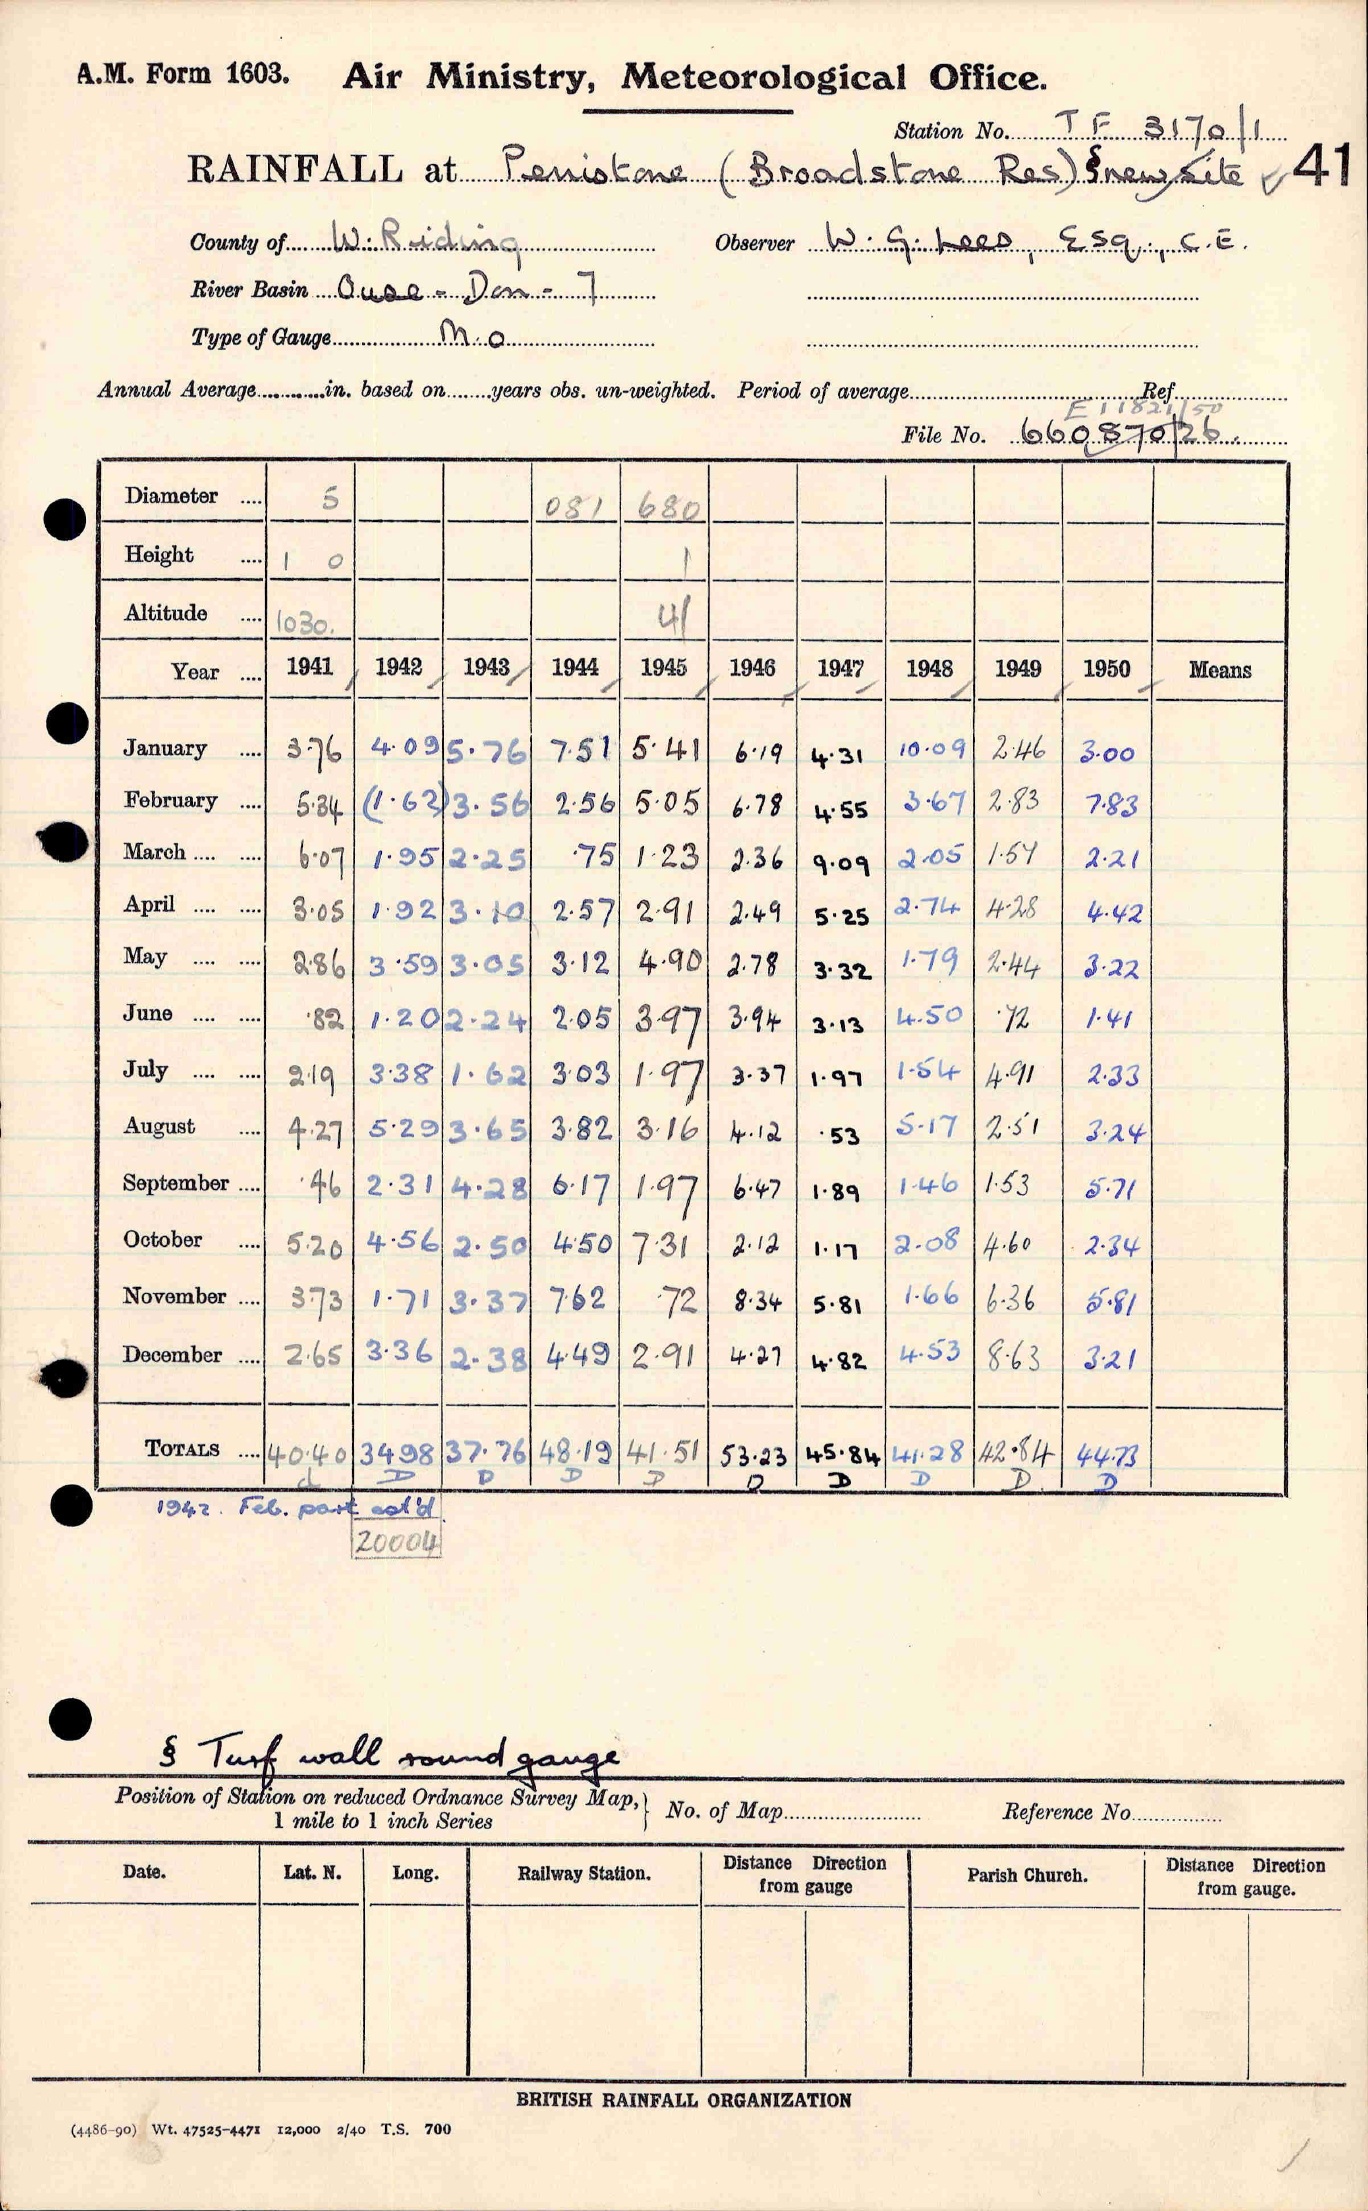 A.M. Form 1603. Air Ministry, Meteorological Office.
Station No. TF 3170/1
RAINFALL at Penistone (Broadstone Res) § new site 41
County of W. Riding Observer W. G. Lees, Esq., C.E.
River Basin Ouse - Don - 7
Type of Gauge M.O
Annual Average in. based on years obs. un-weighted. Period of average Ref
E11821/50
File No. 660870/26.
Diameter .... 5 081 680
Height .... 1 0 1
Altitude .... 1030. 41
Year .... 1941 1942 1943 1944 1945 1946 1947 1948 1949 1950 Means
January .... 3.76 4.09 5.76 7.51 5.41 6.19 4.31 10.09 2.46 3.00
February .... 5.34 (1.62) 3.56 2.56 5.05 6.78 4.55 3.67 2.83 7.83
March .... .... 6.07 1.95 2.25 .75 1.23 2.36 9.09 2.05 1.57 2.21
April .... .... 3.05 1.92 3.10 2.57 2.91 2.49 5.25 2.74 4.28 4.42
May .... .... 2.86 3.59 3.05 3.12 4.90 2.78 3.32 1.79 2.44 3.22
June .... .... .82 1.20 2.24 2.05 3.97 3.94 3.13 4.50 .72 1.41
July .... .... 2.19 3.38 1.62 3.03 1.97 3.37 1.97 1.54 4.91 2.33
August .... 4.27 5.29 3.65 3.82 3.16 4.12 .53 5.17 2.51 3.24
September .... .46 2.31 4.28 6.17 1.97 6.47 1.89 1.46 1.53 5.71
October .... 5.20 4.56 2.50 4.50 7.31 2.12 1.17 2.08 4.60 2.34
November .... 3.73 1.71 3.37 7.62 .72 8.34 5.81 1.66 6.36 5.81
December .... 2.65 3.36 2.38 4.49 2.91 4.27 4.82 4.53 8.63 3.21
TOTALS .... 40.40 34.98 37.76 48.19 41.51 53.23 45.84 41.28 42.84 44.73
d D D D D D D D D D
1942. Feb. part est'd.
20004
§ Turf wall round gauge
Position of Station on reduced Ordnance Survey Map, 1 mile to 1 inch Series } No. of Map Reference No
Date. Lat. N. Long. Railway Station. Distance from gauge Direction Parish Church. Distance Direction from gauge.
BRITISH RAINFALL ORGANIZATION
(4486-90) Wt. 47525-4471 12,000 2/40 T.S. 700